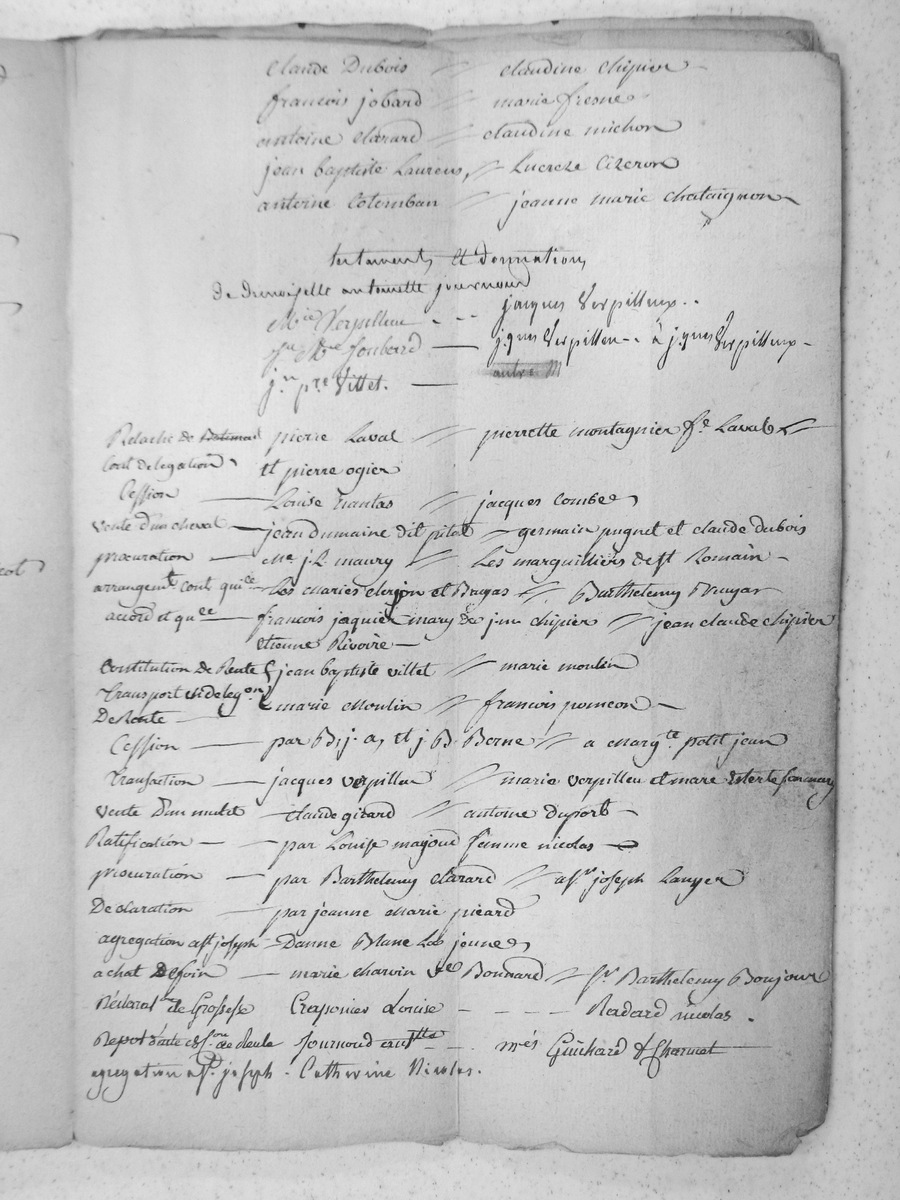 claude Dubois // claudine chipier
francois jobard // marie fresne
antoine clarard // claudine michon
jean baptiste Laurens, // Lucreze Cizeron
antoine Colomban // jeanne marie chataignon
testaments et donnations
de demoiselle antoinette journoud
Mie Verpilleu - - - jacques Verpilleux..
jn pre Villet. —
Relache de pierre Laval // pierrette montagnier fe Laval //
Cont delegation et pierre ogier
Cession — Louise nantas // jacques Combe
vente d'un cheval — jean dumaine dit pilot // germain pugnet et claude dubois
procuration — Me j. L. maury // Les marguilliers de st Romain -
arrangemt cont quice — Les maries clerjon et Brayas // Barthelemy Bruyas
acord et qce — francois jaquier mary de jne chipier // jean claude chipier
etienne Rivoire —
Constitution de Rente { jean baptiste villet // marie moulin
Transport et delegon
De Rente — { marie Moulin // francois poincon -
Cession — par B. j. a, et j. B. Berne // a margte petit jean
Transaction — jacques verpilleu // marie verpilleu et
vente d'un mulet — claude girard // antoine duport -
Ratification — par Louise magoud femme nicolas
procuration — par Barthelemy clarard // a sr joseph Lanyer
Declaration — par jeanne marie picard
agregation a st joseph - Danne Blanc Las jeune
achat de foin — marie charvin ve Bonnard // sr Barthelemy Bonjour
Declaraton de Grossesse Craponier Louise - - - - Radard nicolas.
Depot Journoud mes Guichard & Charvet
egregation a st joseph - Catherine Nicolas.